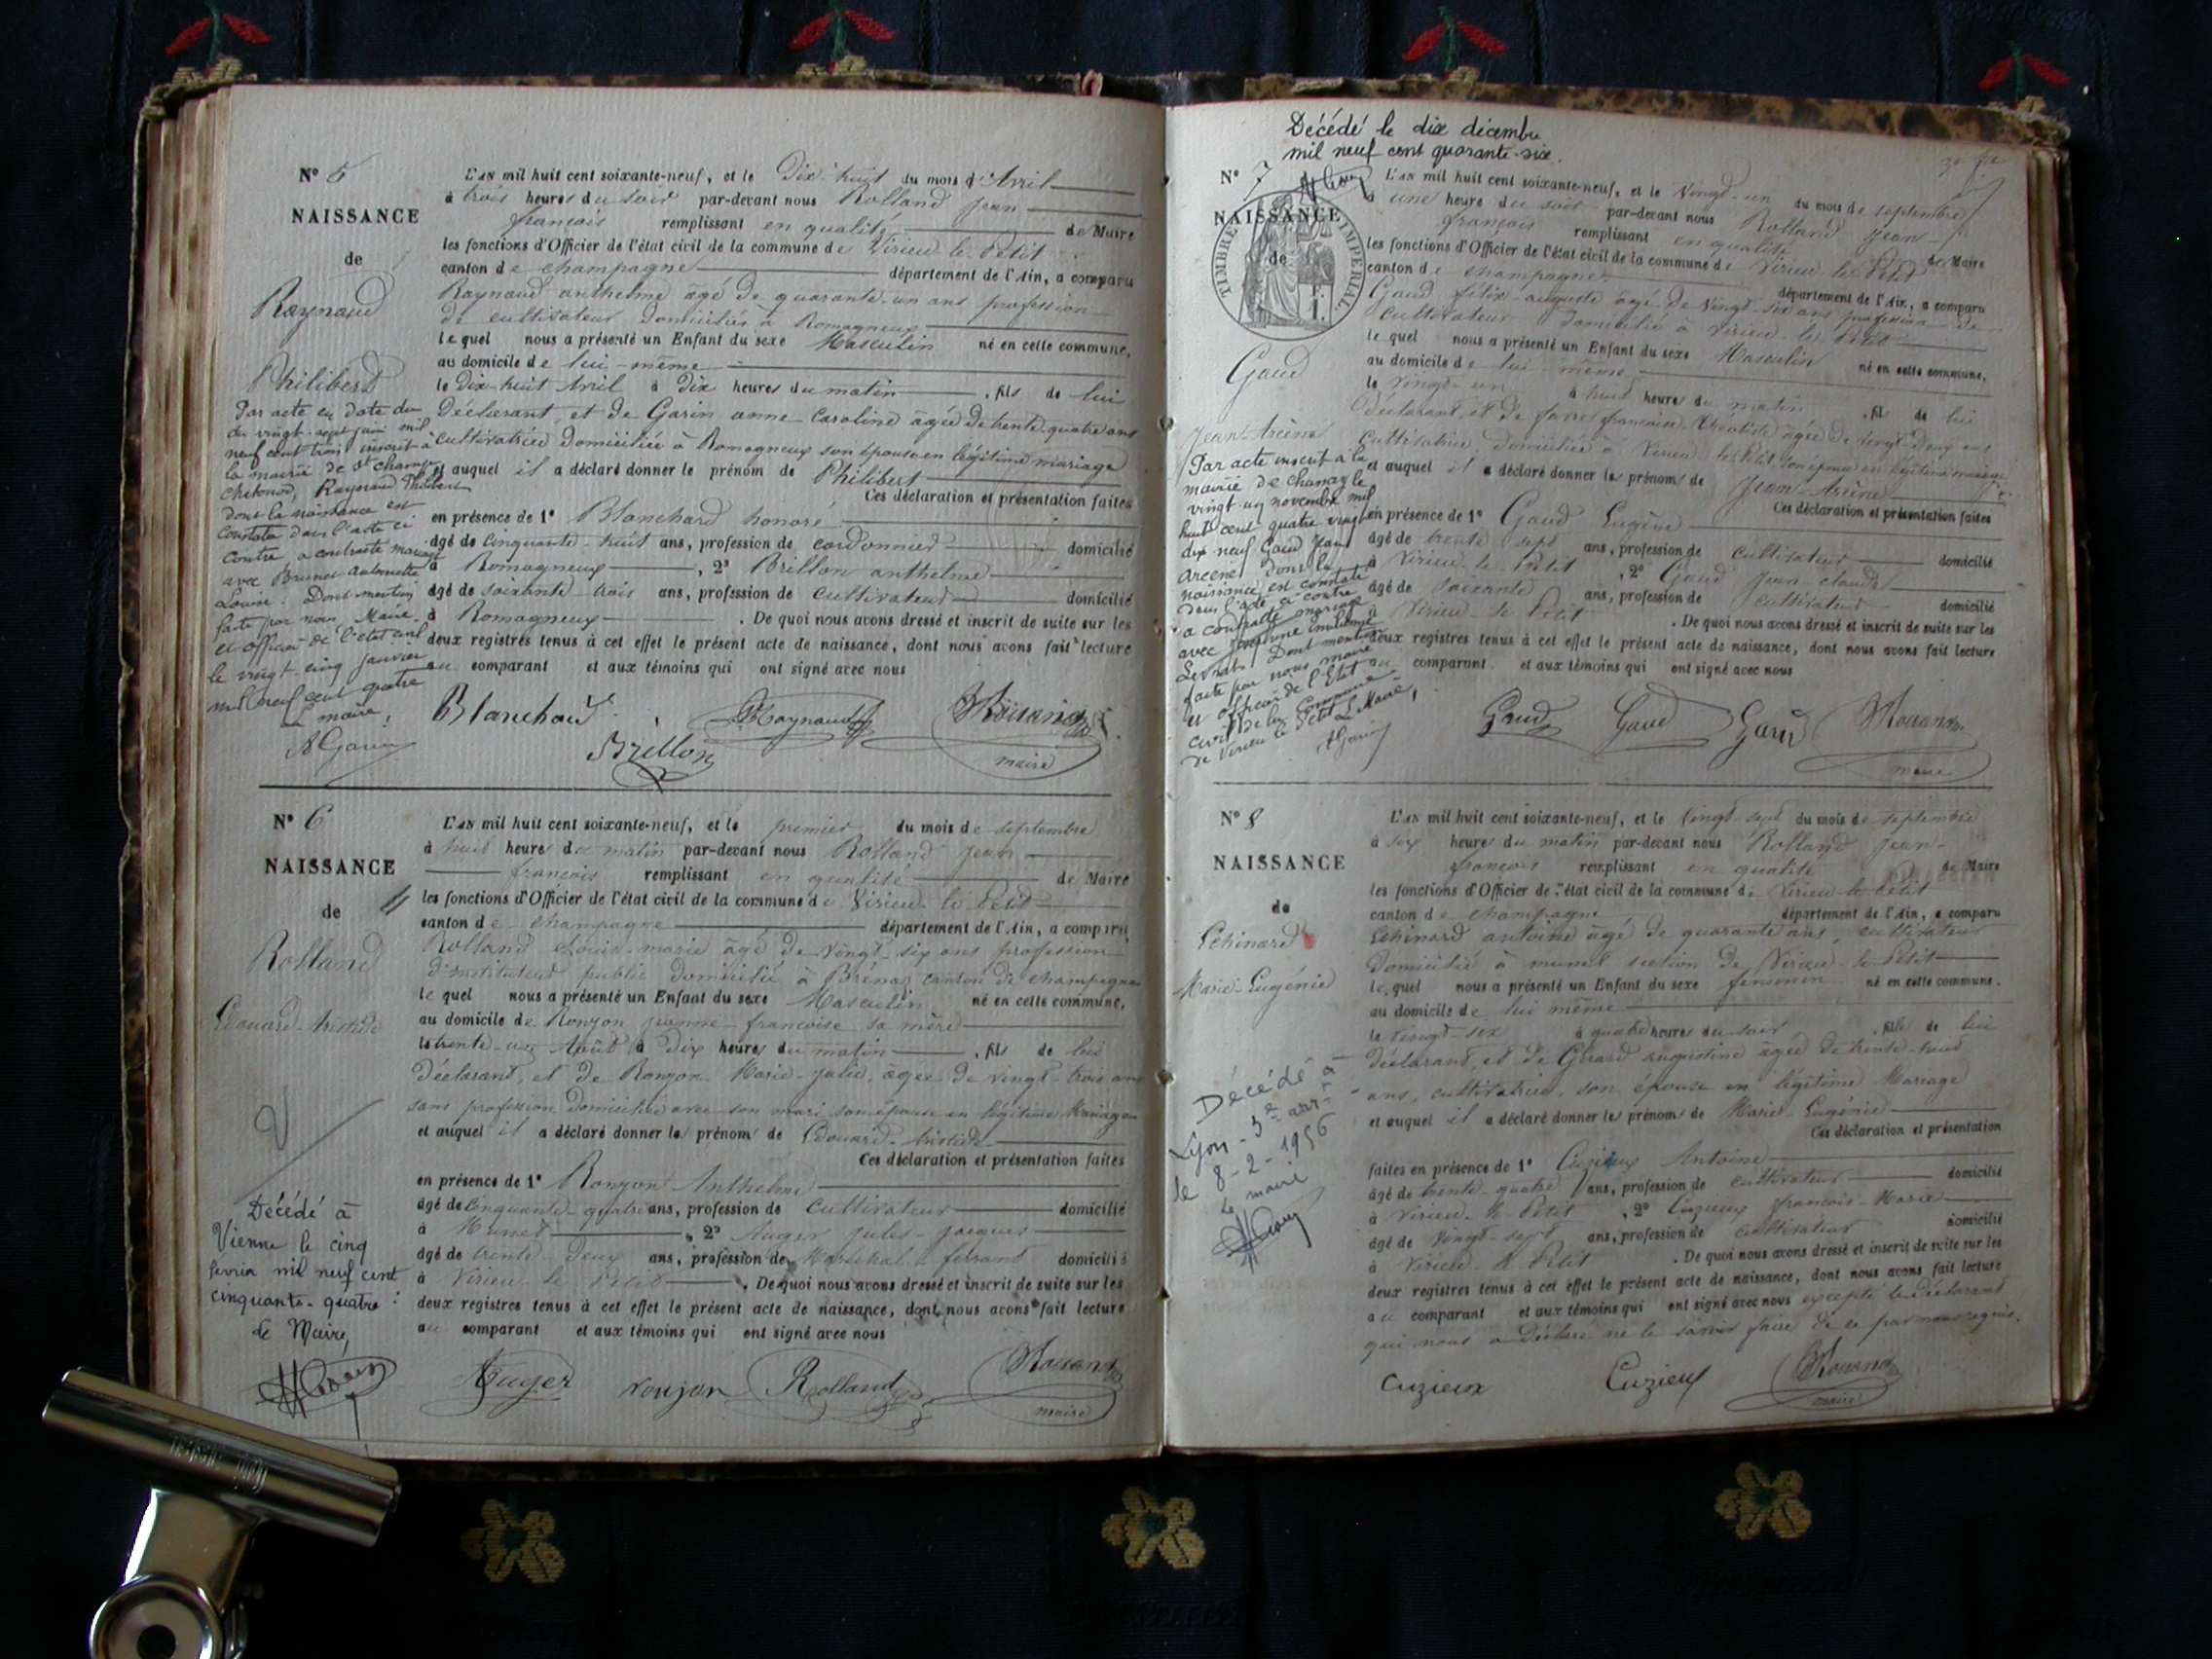 N° 5
NAISSANCE
de
Raynaud
Philibert
Par acte en date du
du vingt-sept juin mil
neuf cent trois inscrit à
la mairie de St Champ
Chatonod, Raynaud Philibert
dont la naissance est
constatée dans l'acte ci
contre a contracté mariage
avec Brunet Antoinette
Louise. Dont mention
faite par nous, Maire
et officier de l'état civil
le vingt-cinq janvier
mil neuf cent quatre
Le maire,
A Garin
L'AN mil huit cent soixante-neuf, et le Dix-huit du mois d'Avril
à trois heures du soir par-devant nous Rolland Jean
françois remplissant en qualité de Maire
les fonctions d'Officier de l'état civil de la commune de Virieu-le-Petit
canton de champagne département de l'Ain, a comparu
Raynaud anthelme âgé de quarante-un ans profession
de cultivateur domicilié à Romagneux
lequel nous a présenté un Enfant du sexe Masculin né en cette commune,
au domicile de lui-même
le dix-huit Avril à dix heures du matin, fils de lui
Déclarant, et de Garin anne Caroline âgée de trente-quatre ans
cultivatrice domiciliée à Romagneux son épouse en légitime mariage
et auquel il a déclaré donner le prénom de Philibert
Ces déclaration et présentation faites
en présence de 1° Blanchard honoré
âgé de cinquante-huit ans, profession de cordonnier domicilié
à Romagneux, 2° Brillon anthelme
âgé de soixante-trois ans, profession de cultivateur domicilié
à Romagneux. De quoi nous avons dressé et inscrit de suite sur les
deux registres tenus à cet effet le présent acte de naissance, dont nous avons fait lecture
au comparant et aux témoins qui ont signé avec nous
Blanchard Raynaud Rolland
Brillon maire
N° 6
NAISSANCE
de
Rolland
Edouard-Aristide
Décédé à
Vienne le cinq
février mil neuf cent
cinquante-quatre
Le Maire,
L'AN mil huit cent soixante-neuf, et le premier du mois de septembre
à huit heures du matin par-devant nous Rolland Jean
françois remplissant en qualité de Maire
les fonctions d'Officier de l'état civil de la commune de Virieu-le-Petit
canton de champagne département de l'Ain, a comparu
Rolland Louis-marie âgé de vingt-six ans profession
d'instituteur public domicilié à Brénaz canton de champagne
lequel nous a présenté un Enfant du sexe Masculin né en cette commune,
au domicile de Ronjon jeanne-francoise sa mère
le trente-un Août à dix heures du matin, fils de lui
déclarant, et de Ronjon Marie-julie, âgée de vingt-trois ans
sans profession domiciliée avec son mari son épouse en légitime Mariage
et auquel il a déclaré donner les prénoms de Edouard-Aristide
Ces déclaration et présentation faites
en présence de 1° Ronjon Anthelme
âgé de cinquante-quatre ans, profession de cultivateur domicilié
à Munet, 2° Auger jules-jacques
âgé de trente-deux ans, profession de Maréchal-ferrant domicilié
à Virieu-le-Petit. De quoi nous avons dressé et inscrit de suite sur les
deux registres tenus à cet effet le présent acte de naissance, dont nous avons fait lecture
au comparant et aux témoins qui ont signé avec nous
Auger ronjon Rolland Rolland
maire
Décédé le dix décembre
mil neuf cent quarante-six.
N° 7
NAISSANCE
de
TIMBRE IMPERIAL
1 F.
Gaud
Jean-Arcène
Par acte inscrit à la
mairie de Chanay le
vingt-un novembre mil
huit cent quatre vingt
dix neuf Gaud Jean
Arcène dont la
naissance est constatée
dans l'acte ci-contre
a contracté mariage
avec
Dont mention
faite par nous maire
et officier de l'Etat
civil de la Commune
de Virieu le Petit Le Maire,
A Garin
L'AN mil huit cent soixante-neuf, et le vingt-un du mois de septembre
à une heure du soir par-devant nous Rolland Jean-
françois remplissant en qualité de Maire
les fonctions d'Officier de l'état civil de la commune de Virieu-le-Petit
canton de champagne département de l'Ain, a comparu
Gaud félix-auguste âgé de vingt-six ans profession de
cultivateur domicilié à Virieu-le-Petit
lequel nous a présenté un Enfant du sexe Masculin né en cette commune,
au domicile de lui-même
le vingt-un à huit heures du matin, fils de lui
déclarant, et de francoise âgée de vingt-deux ans
cultivatrice, domiciliée à Virieu-le-Petit, son épouse en légitime mariage
et auquel il a déclaré donner les prénoms de Jean-Arcène
Ces déclaration et présentation faites
en présence de 1° Gaud Eugène
âgé de trente-sept ans, profession de cultivateur domicilié
à Virieu-le-Petit, 2° Gaud Jean-claude
âgé de soixante ans, profession de cultivateur domicilié
à Virieu-le-Petit. De quoi nous avons dressé et inscrit de suite sur les
deux registres tenus à cet effet le présent acte de naissance, dont nous avons fait lecture
au comparant et aux témoins qui ont signé avec nous
Gaud Gaud Gaud Rolland
maire
N° 8
NAISSANCE
de
Echinard
Marie-Eugénie
Décédé à
Lyon-3e arrt
le 8-2-1956
Le maire
L'AN mil huit cent soixante-neuf, et le vingt-sept du mois de septembre
à six heures du matin par-devant nous Rolland Jean-
françois remplissant en qualité de Maire
les fonctions d'Officier de l'état civil de la commune de Virieu-le-Petit
canton de champagne département de l'Ain, a comparu
Echinard antoine âgé de quarante ans, cultivateur
domicilié à munet section de Virieu-le-Petit
lequel nous a présenté un Enfant du sexe féminin né en cette commune,
au domicile de lui même
le vingt-six à quatre heures du soir, fille de lui
déclarant, et de Girard augustine âgée de trente-huit
ans, cultivatrice, son épouse en légitime Mariage
et auquel il a déclaré donner les prénoms de Marie-Eugénie
Ces déclaration et présentation
faites en présence de 1° Cuzieux Antoine
âgé de trente-quatre ans, profession de cultivateur domicilié
à Virieu-le-Petit, 2° Cuzieux francois-Marie
âgé de vingt-sept ans, profession de cultivateur domicilié
à Virieu-le-Petit. De quoi nous avons dressé et inscrit de suite sur les
deux registres tenus à cet effet le présent acte de naissance, dont nous avons fait lecture
au comparant et aux témoins qui ont signé avec nous excepté le déclarant
qui nous a déclaré ne le savoir faire de ce par nous requis.
Cuzieux Cuzieux Rolland
maire